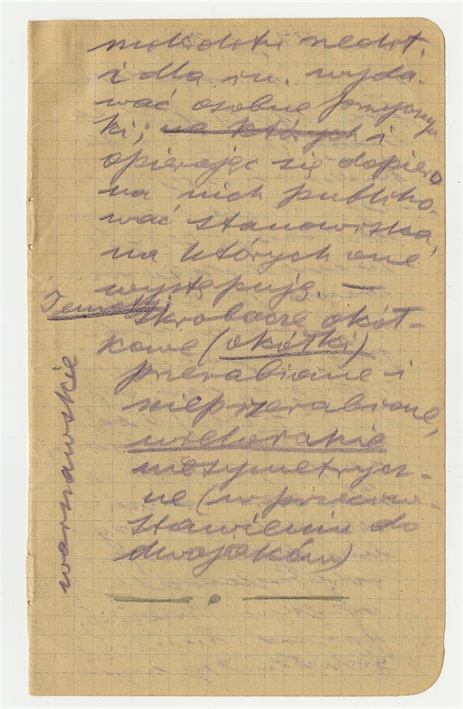 i dla in. wyda-
wać osobne przyczyn-
ki; na których i
opierając się dopiero
na nich publiko-
wać stanowiska,
na których one
występują. —
Tematy
skrobacze okół-
kowe (okółki)
przerabiane i
nieprzerabiane,
wielorakie
niesymetrycz-
ne (w przeciw-
stawieniu do
dwojaków)
warszawskie